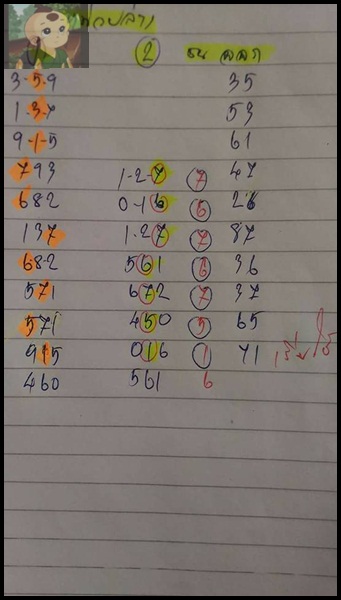 ② บน ออก
3-5-9 35
1-3-7 53
9-1-5 61
793 1-2-7 7 47
682 0-16 6 26
137 1-27 7 87
682 561 6 36
571 672 7 37
571 450 5 65
915 016 1 71
460 561 6